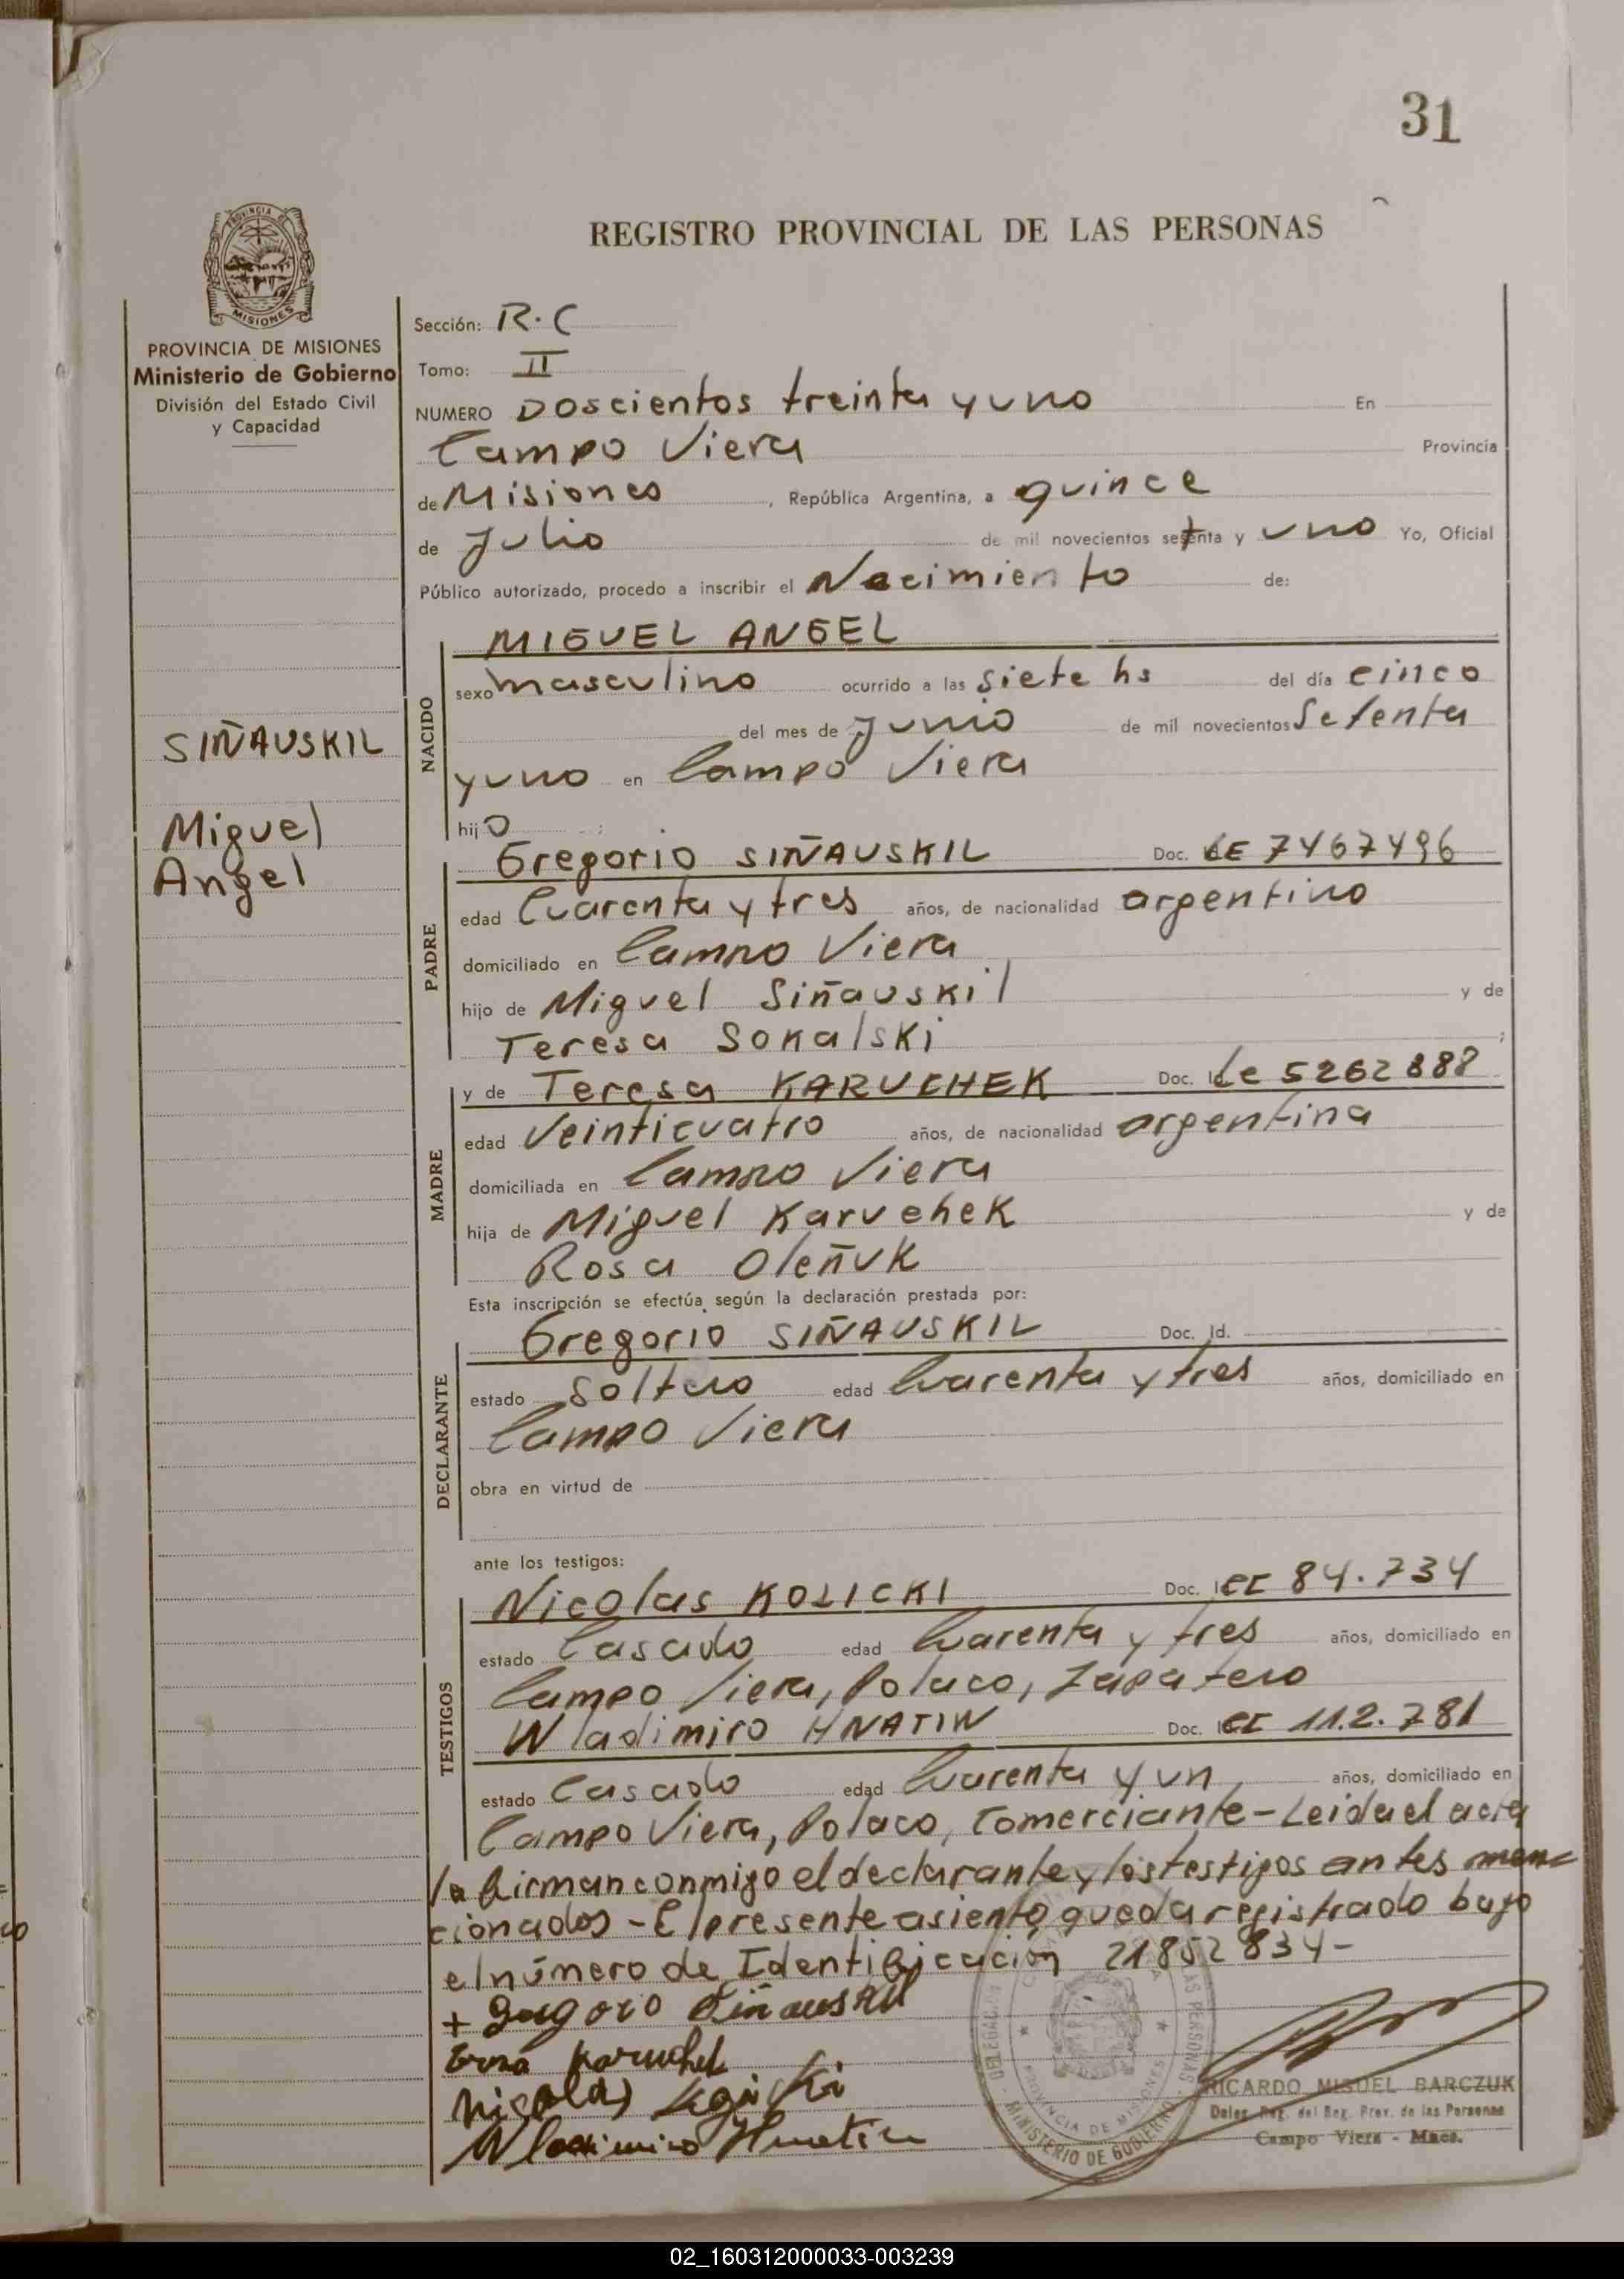 31
REGISTRO PROVINCIAL DE LAS PERSONAS
PROVINCIA DE MISIONES
PROVINCIA DE MISIONES
Ministerio de Gobierno
División del Estado Civil
y Capacidad
SIÑAUSKIL
Miguel
Angel
Sección: R.C
Tomo: II
NUMERO Doscientos treinta y uno En
Campo Viera Provincia
de Misiones, República Argentina, a quince
de Julio de mil novecientos setenta y uno Yo, Oficial
Público autorizado, procedo a inscribir el Nacimiento de:
NACIDO
MIGUEL ANGEL
sexo masculino ocurrido a las siete hs del día cinco
del mes de Junio de mil novecientos Setenta
y uno en Campo Viera
hijo ;
PADRE
Gregorio SIÑAUSKIL Doc. LE 7467496
edad Cuarenta y tres años, de nacionalidad argentino
domiciliado en Campo Viera
hijo de Miguel Siñauskil y de
Teresa Sokalski ;
MADRE
y de Teresa KARUCHEK Doc. Lc 5262888
edad Veinticuatro años, de nacionalidad argentina
domiciliada en Campo Viera
hija de Miguel Karuchek y de
Rosa Oleñuk
Esta inscripción se efectúa según la declaración prestada por:
DECLARANTE
Gregorio SIÑAUSKIL Doc. Id.
estado Soltero edad Cuarenta y tres años, domiciliado en
Campo Viera
obra en virtud de
ante los testigos:
TESTIGOS
Nicolas KOZICKI Doc. CI 84.734
estado Casado edad Cuarenta y tres años, domiciliado en
Campo Viera, Polaco, Zapatero
Wladimiro HNATIW Doc. CI 112.781
estado Casado edad Cuarenta y un años, domiciliado en
Campo Viera, Polaco, Comerciante - Leida el acta
la firman conmigo el declarante y los testigos antes men-
cionados - El presente asiento queda registrado bajo
el número de Identificación 21852834-
+ Gregorio Siñauskil
Karuchek
Nicolas
Wladimiro Hnatiw
MINISTERIO DE GOBIERNO
PROVINCIA DE MISIONES
RICARDO MIGUEL BARCZUK
Deleg. Reg. del Reg. Prov. de las Personas
Campo Viera - Mnes.
02_160312000033-003239